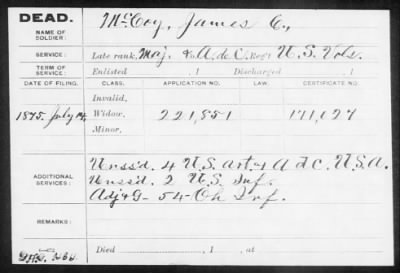 DEAD.
NAME OF SOLDIER: McCoy, James C.,
SERVICE: Late rank, Maj. & A. de C. Reg't U. S. Vols.
TERM OF SERVICE: Enlisted , 1 Discharged , 1
DATE OF FILING. CLASS. APPLICATION NO. LAW. CERTIFICATE NO.
Invalid,
1875. July 14 Widow, 221,851 171,127
Minor,
ADDITIONAL SERVICES: Unss'd. 4 U.S. Art. & A d C. U.S.A.
Unss'd. 2 U.S. Inf.
Adj & G- 54- Oh Inf.
REMARKS:
Died , 1 , at